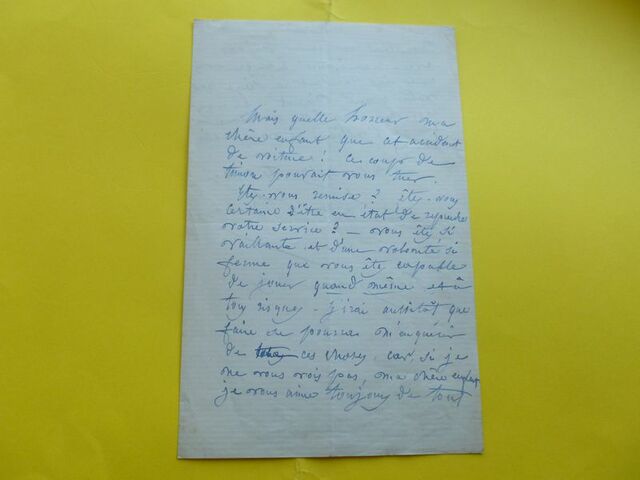 Mais quelle horreur ma
chère enfant que cet accident
de voiture ! ce coup de
timon pouvait vous tuer.
Etes-vous remise ? êtes-vous
certaine d'être en état de reprendre
votre service ? — vous êtes si
vaillante et d'une volonté si
ferme que vous êtes capable
de jouer quand même et à
tous risques. J'irai aussitôt que
faire se pourra m'enquérir
de ces choses, car si je
ne vous vois pas, ma chère enfant
je vous aime toujours de tout